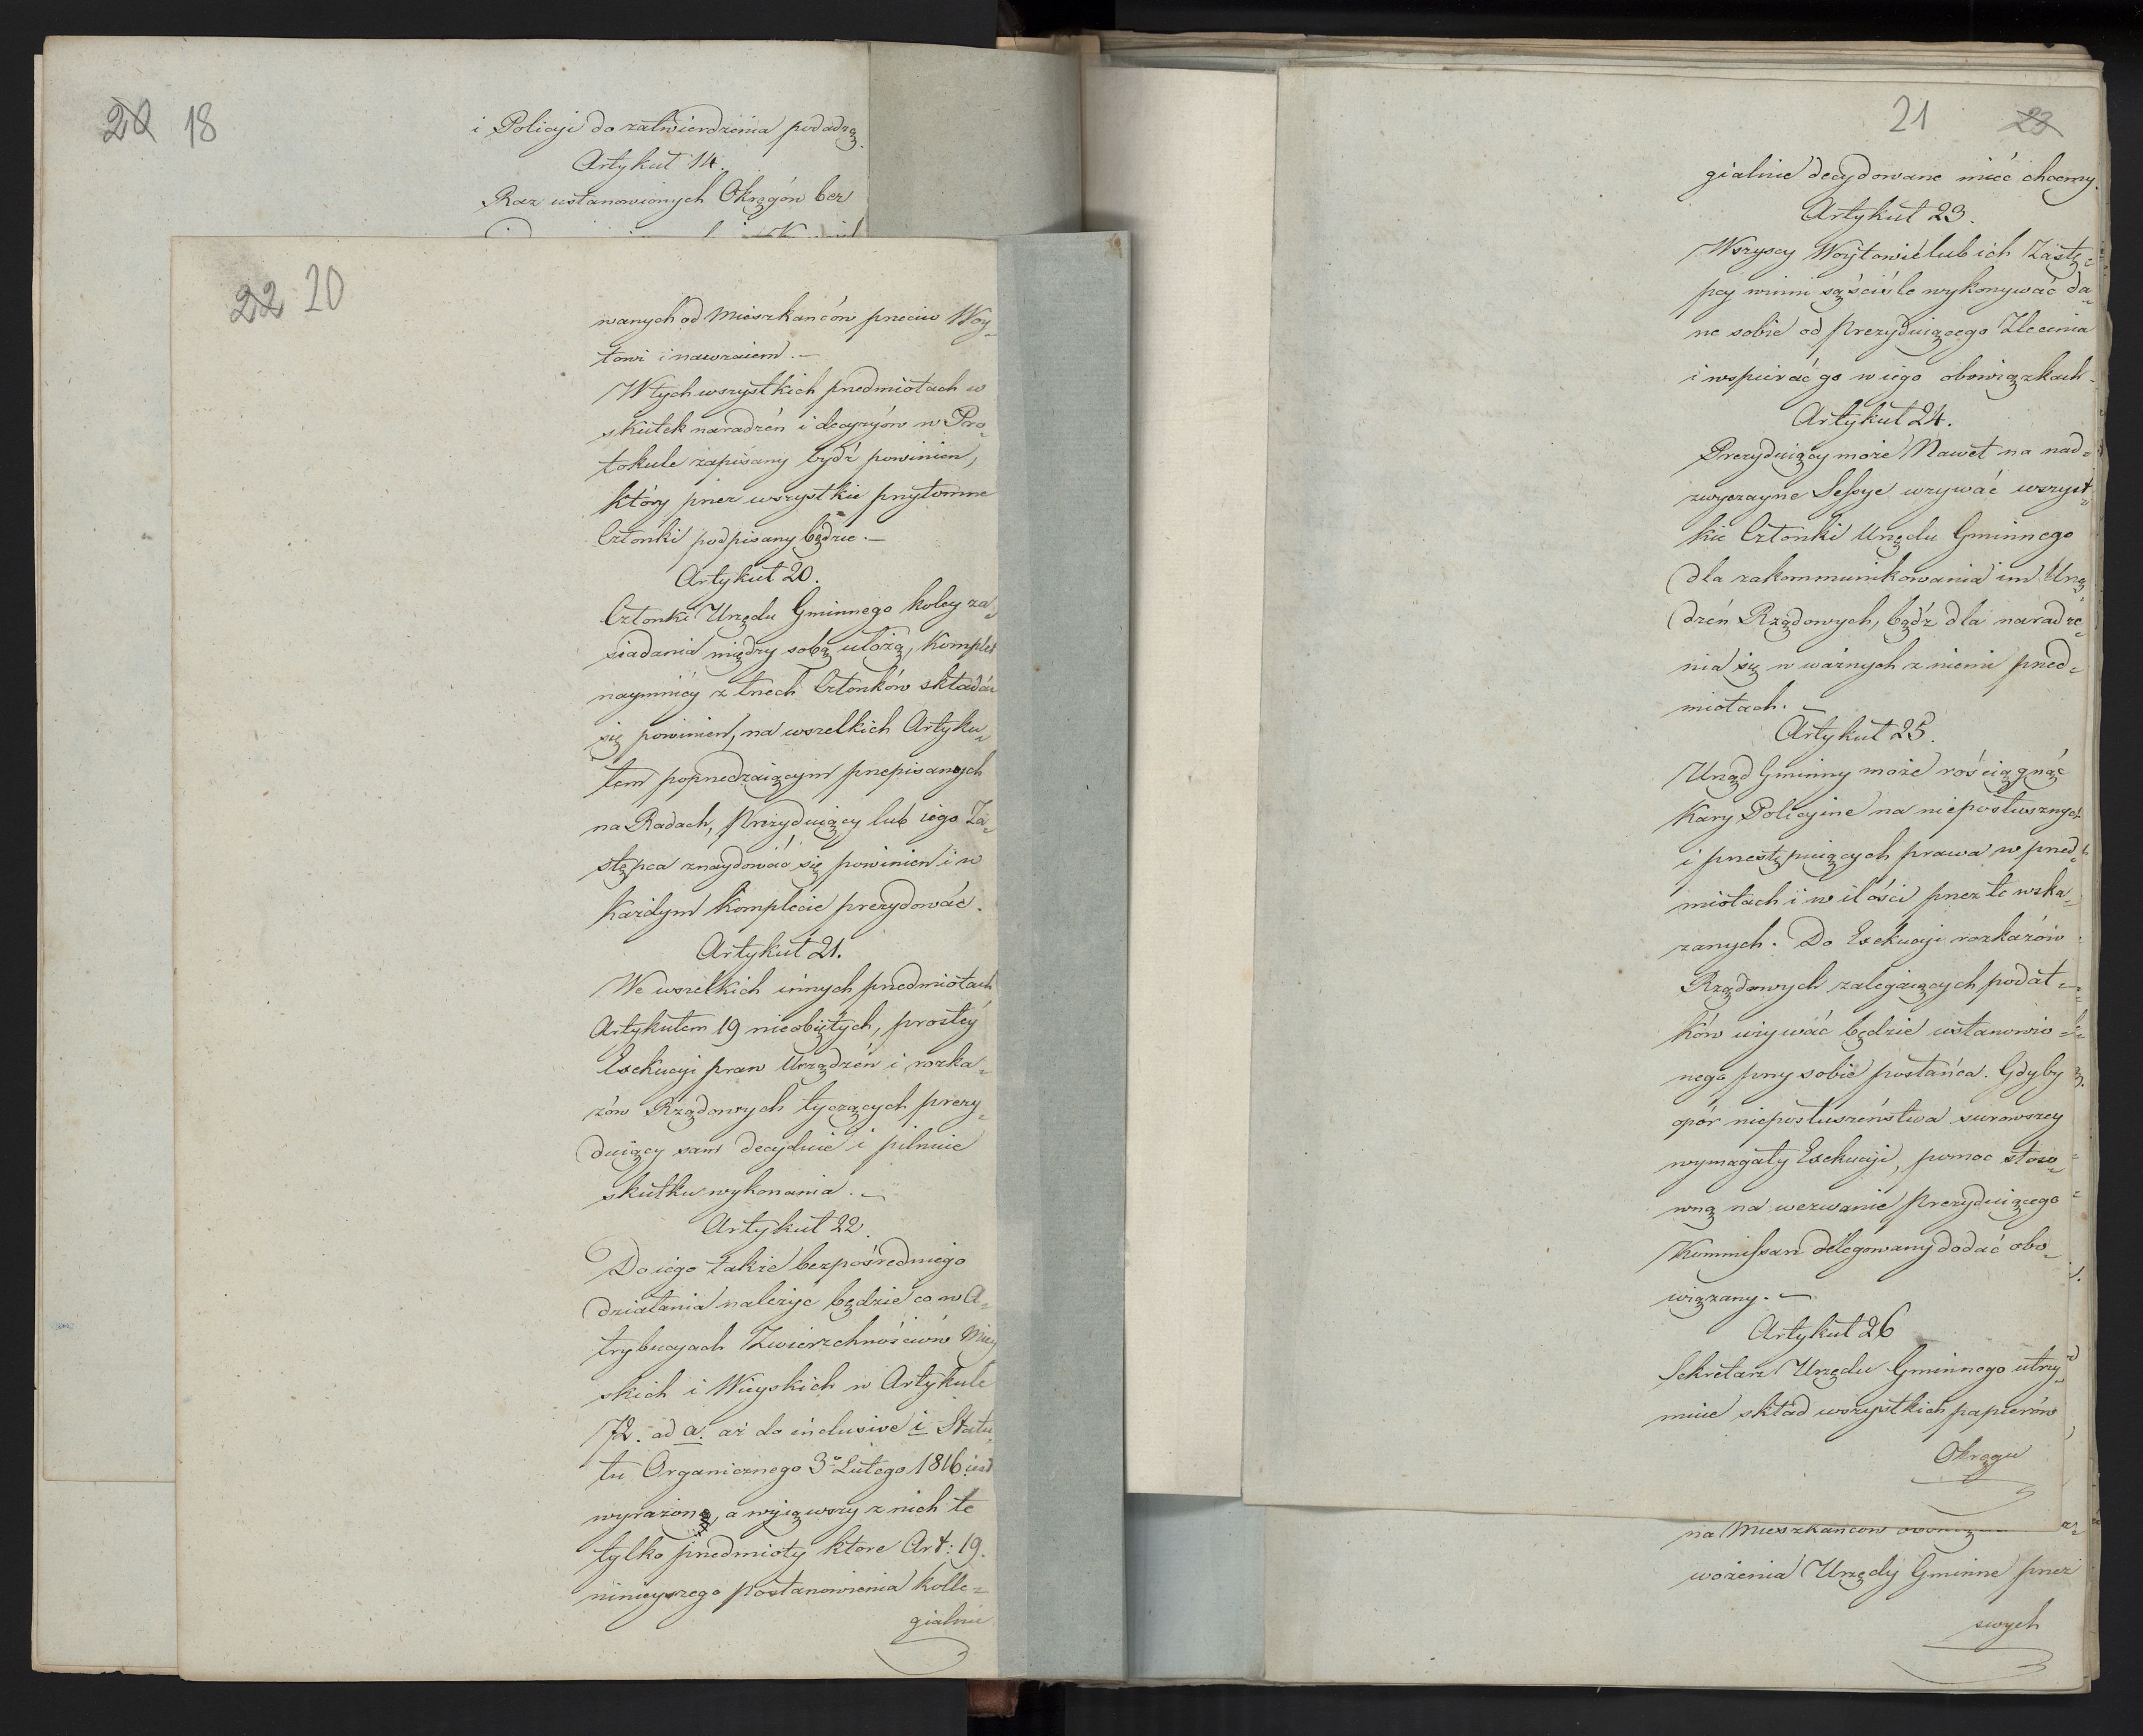 20 18
i Policyi do zatwierdzenia podadzą.
Artykuł 14.
Raz ustanowionych Okręgów bez
22 20
wanych od Mieszkańców przeciw Woy„
towi i nawzaiem. —
W tych wszystkich przedmiotach w
skutek naradzeń i decyzyów w Pro„
tokule zapisany bydź powinien,
który przez wszystkie przytomne
Członki podpisany będzie. —
Artykuł 20.
Członki Urzędu Gminnego koley za„
siadania między sobą ułożą, Komplet
naymniéy z trzech Członków składać
się powinien, na wszelkich Artyku„
łem poprzedzaiącym przepisanych
na Radach, Prezyduiący lub iego Za„
stępca znaydować się powinien i w
każdym Komplecie prezydować.
Artykuł 21.
We wszelkich innych przedmiotach
Artykułem 19 nieobiętych, prostéy
Exekucyi praw Urządzeń i rozka„
zów Rządowych tyczących prezy„
duiący sam decyduie i pilnuie
skutku wykonania. —
Artykuł 22.
Do iego także bezpośredniego
działania należyć będzie co w A„
trybucyach Zwierzchnościów Miey
skich i Wieyskich w Artykule
72. ad a. aż do inclusive i Statu„
tu Organicznego 3º Lutego 1816 iest
wyrażone, a wyiąwszy z nich te
tylko przedmioty ktore Art: 19.
ninieyszego Postanowienia kolle„
gialnie
21 23
gialnie decydowane mieć chcemy.
Artykuł 23.
Wszyscy Woytowie lub ich Zastę„
pcy winni są ściśle wykonywać da„
ne sobie od Prezyduiącego Zlecenia
i wspierać go w iego obowiązkach.
Artykuł 24.
Prezyduiący może Nawet na nad„
zwyczayne Sessye wzywać wszyst„
kie Członki Urzędu Gminnego
dla zakommunikowania im Urzą„
dzeń Rządowych, bądź dla naradze„
nia się w ważnych z niemi przed„
miotach. —
Artykuł 25.
Urząd Gminny może rościągnąć
Kary Policyine na nieposłusznych
i przestępuiących prawa w przed„
miotach i w ilości przez te wska„
zanych. Do Exekucyi rozkazów
Rządowych zalegaiących podat„
ków używać będzie ustanowio„
nego przy sobie posłańca. Gdyby
opór nieposłuszeństwa surowszey
wymagały Exekucyi, pomoc stoso„
wną na wezwanie Prezyduiącego
Kommissarz delegowany dodać obo„
wiązany. —
Artykuł 26
Sekretarz Urzędu Gminnego utrzy„
muie skład wszystkich papierów
Okręgu
na Mieszkańców
wożenia Urzędy Gminne przez
swych